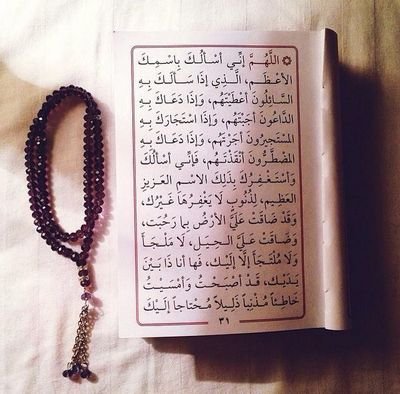 اللَّهُمَّ إِنِّي أَسْأَلُكَ بِاسْمِكَ
الأَعْظَمِ، الَّذِي إِذَا سَأَلَكَ بِهِ
السَّائِلُونَ أَعْطَيْتَهُم، وَإِذَا دَعَاكَ بِهِ
الدَّاعُونَ أَجَبْتَهُم، وَإِذَا اسْتَجَارَكَ بِهِ
المُسْتَجِيرُونَ أَجَرْتَهُم، وَإِذَا دَعَاكَ بِهِ
المُضْطَرُّونَ أَنْقَذْتَهُم، فَإِنِّي أَسْأَلُكَ
وَأَسْتَغْفِرُكَ بِذَلِكَ الاسْمِ العَزِيزِ
العَظِيمِ، لِذُنُوبٍ لَا يَغْفِرُهَا غَيْرُكَ،
وَقَدْ ضَاقَتْ عَلَيَّ الأَرْضُ بِمَا رَحُبَت،
وَضَاقَتْ عَلَيَّ الحِيَل، لَا مَلْجَأَ
وَلَا مُلْتَجَأَ إِلَّا إِلَيْك، فَهَا أَنَا ذَا بَيْنَ
يَدَيْكَ، قَدْ أَصْبَحْتُ وَأَمْسَيْتُ
خَاطِئاً مُذْنِباً ذَلِيلاً مُحْتَاجاً إِلَيْكَ
٣١